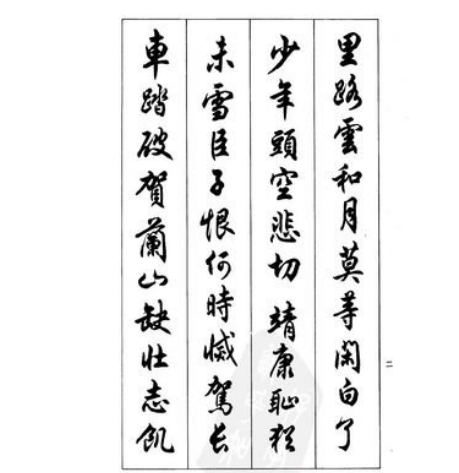 里路雲和月莫等閑白了
少年頭空悲切靖康恥猶
未雪臣子恨何時滅駕長
車踏破賀蘭山缺壯志飢
二